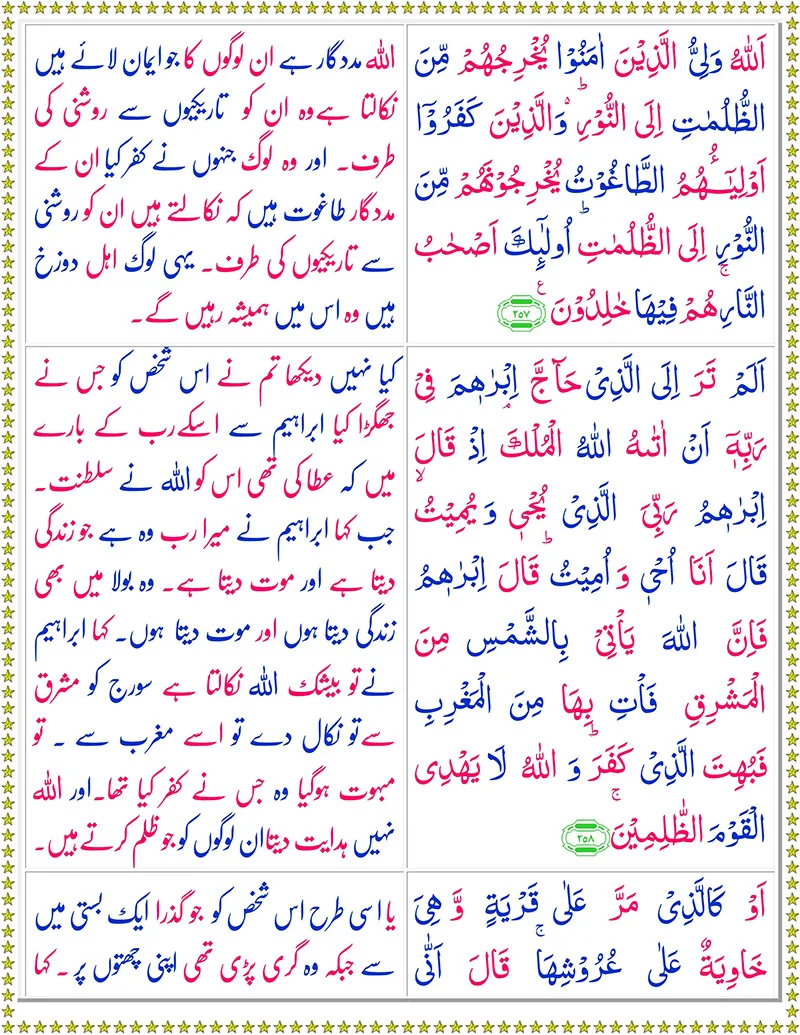 اَللّٰهُ وَلِیُّ الَّذِیْنَ اٰمَنُوْا یُخْرِجُهُمْ مِّنَ
الظُّلُمٰتِ اِلَی النُّوْرِ ؕ۬ وَالَّذِیْنَ كَفَرُوْۤا
اَوْلِیٰٓـُٔهُمُ الطَّاغُوْتُ یُخْرِجُوْنَهُمْ مِّنَ
النُّوْرِ اِلَی الظُّلُمٰتِ ؕ اُولٰٓئِكَ اَصْحٰبُ
النَّارِ ۚ هُمْ فِیْهَا خٰلِدُوْنَ ۧ ٢٥٧
اللہ مددگار ہے ان لوگوں کا جو ایمان لائے ہیں
نکالتا ہے وہ ان کو تاریکیوں سے روشنی کی
طرف۔ اور وہ لوگ جنہوں نے کفر کیا ان کے
مددگار طاغوت ہیں کہ نکالتے ہیں ان کو روشنی
سے تاریکیوں کی طرف۔ یہی لوگ اہل دوزخ
ہیں وہ اس میں ہمیشہ رہیں گے۔
اَلَمْ تَرَ اِلَی الَّذِیْ حَآجَّ اِبْرٰهٖمَ فِیْ
رَبِّهٖۤ اَنْ اٰتٰىهُ اللّٰهُ الْمُلْكَ ۘ اِذْ قَالَ
اِبْرٰهٖمُ رَبِّیَ الَّذِیْ یُحْیٖ وَ یُمِیْتُ ۙ
قَالَ اَنَا اُحْیٖ وَ اُمِیْتُ ؕ قَالَ اِبْرٰهٖمُ
فَاِنَّ اللّٰهَ یَاْتِیْ بِالشَّمْسِ مِنَ
الْمَشْرِقِ فَاْتِ بِهَا مِنَ الْمَغْرِبِ
فَبُهِتَ الَّذِیْ كَفَرَ ؕ وَ اللّٰهُ لَا یَهْدِی
الْقَوْمَ الظّٰلِمِیْنَ ۚ ٢٥٨
کیا نہیں دیکھا تم نے اس شخص کو جس نے
جھگڑا کیا ابراہیم سے اسکے رب کے بارے
میں کہ عطا کی تھی اس کو اللہ نے سلطنت۔
جب کہا ابراہیم نے میرا رب وہ ہے جو زندگی
دیتا ہے اور موت دیتا ہے۔ وہ بولا میں بھی
زندگی دیتا ہوں اور موت دیتا ہوں۔ کہا ابراہیم
نے تو بیشک اللہ نکالتا ہے سورج کو مشرق
سے تو نکال دے تو اسے مغرب سے ۔ تو
مبہوت ہوگیا وہ جس نے کفر کیا تھا۔ اور اللہ
نہیں ہدایت دیتا ان لوگوں کو جو ظلم کرتے ہیں۔
اَوْ كَالَّذِیْ مَرَّ عَلٰی قَرْیَةٍ وَّ هِیَ
خَاوِیَةٌ عَلٰی عُرُوْشِهَا ۚ قَالَ اَنّٰی
یا اسی طرح اس شخص کو جو گذرا ایک بستی میں
سے جبکہ وہ گری پڑی تھی اپنی چھتوں پر ۔ کہا